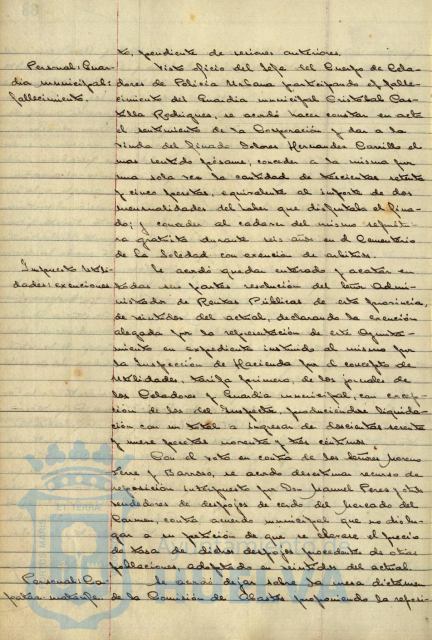 to, pendiente de sesiones anteriores.
Personal: Guar-
dia municipal:
fallecimiento.
Visto oficio del Jefe del Cuerpo de Cela-
dores de Policía Urbana participando el falle-
cimiento del Guardia municipal Cristóbal Cas-
tilla Rodríguez, se acordó hacer constar en acta
el sentimiento de la Corporación y dar a la
viuda del finado Dolores Hernández Carrillo el
mas sentido pésame, conceder a la misma por
una sola vez la cantidad de trescientas setenta
y cinco pesetas, equivalente al importe de dos
mensualidades del haber que disfrutaba el fina-
do; y conceder al cadáver del mismo sepultu-
ra gratuita durante seis años en el Cementerio
de la Soledad con exención de arbitrios.
Impuesto Utili-
dades: exenciones
Se acordó quedar enterado y acatar en
todas sus partes resolución del Señor Admi-
nistrador de Rentas Públicas de esta provincia,
de veintidos del actual, declarando la exención
alegada por la representación de este Ayunta-
miento en expediente instruido al mismo por
la Inspección de Hacienda por el concepto de
Utilidades, tarifa primera, de los jornales de
los Celadores y Guardia municipal, con excep-
ción de los del Inspector, produciendose liquida-
ción con un total a ingresar de doscientas sesenta
y nueve pesetas noventa y tres céntimos.
Con el voto en contra de los Señores Moreno
y Barroso, se acordó desestimar recurso de
reposición interpuesto por Don Manuel Perez y otros
vendedores de despojos de cerdo del Mercado del
Carmen, contra acuerdo municipal que no dió lu-
gar a su petición de que se elevase el precio
de tasa de dichos despojos procedentes de otras
poblaciones, adoptado en veintidos del actual.
Personal: Ca-
pataz matarife
Se acordó dejar sobre la mesa dictamen
de la Comisión de Abastos proponiendo la reposi-